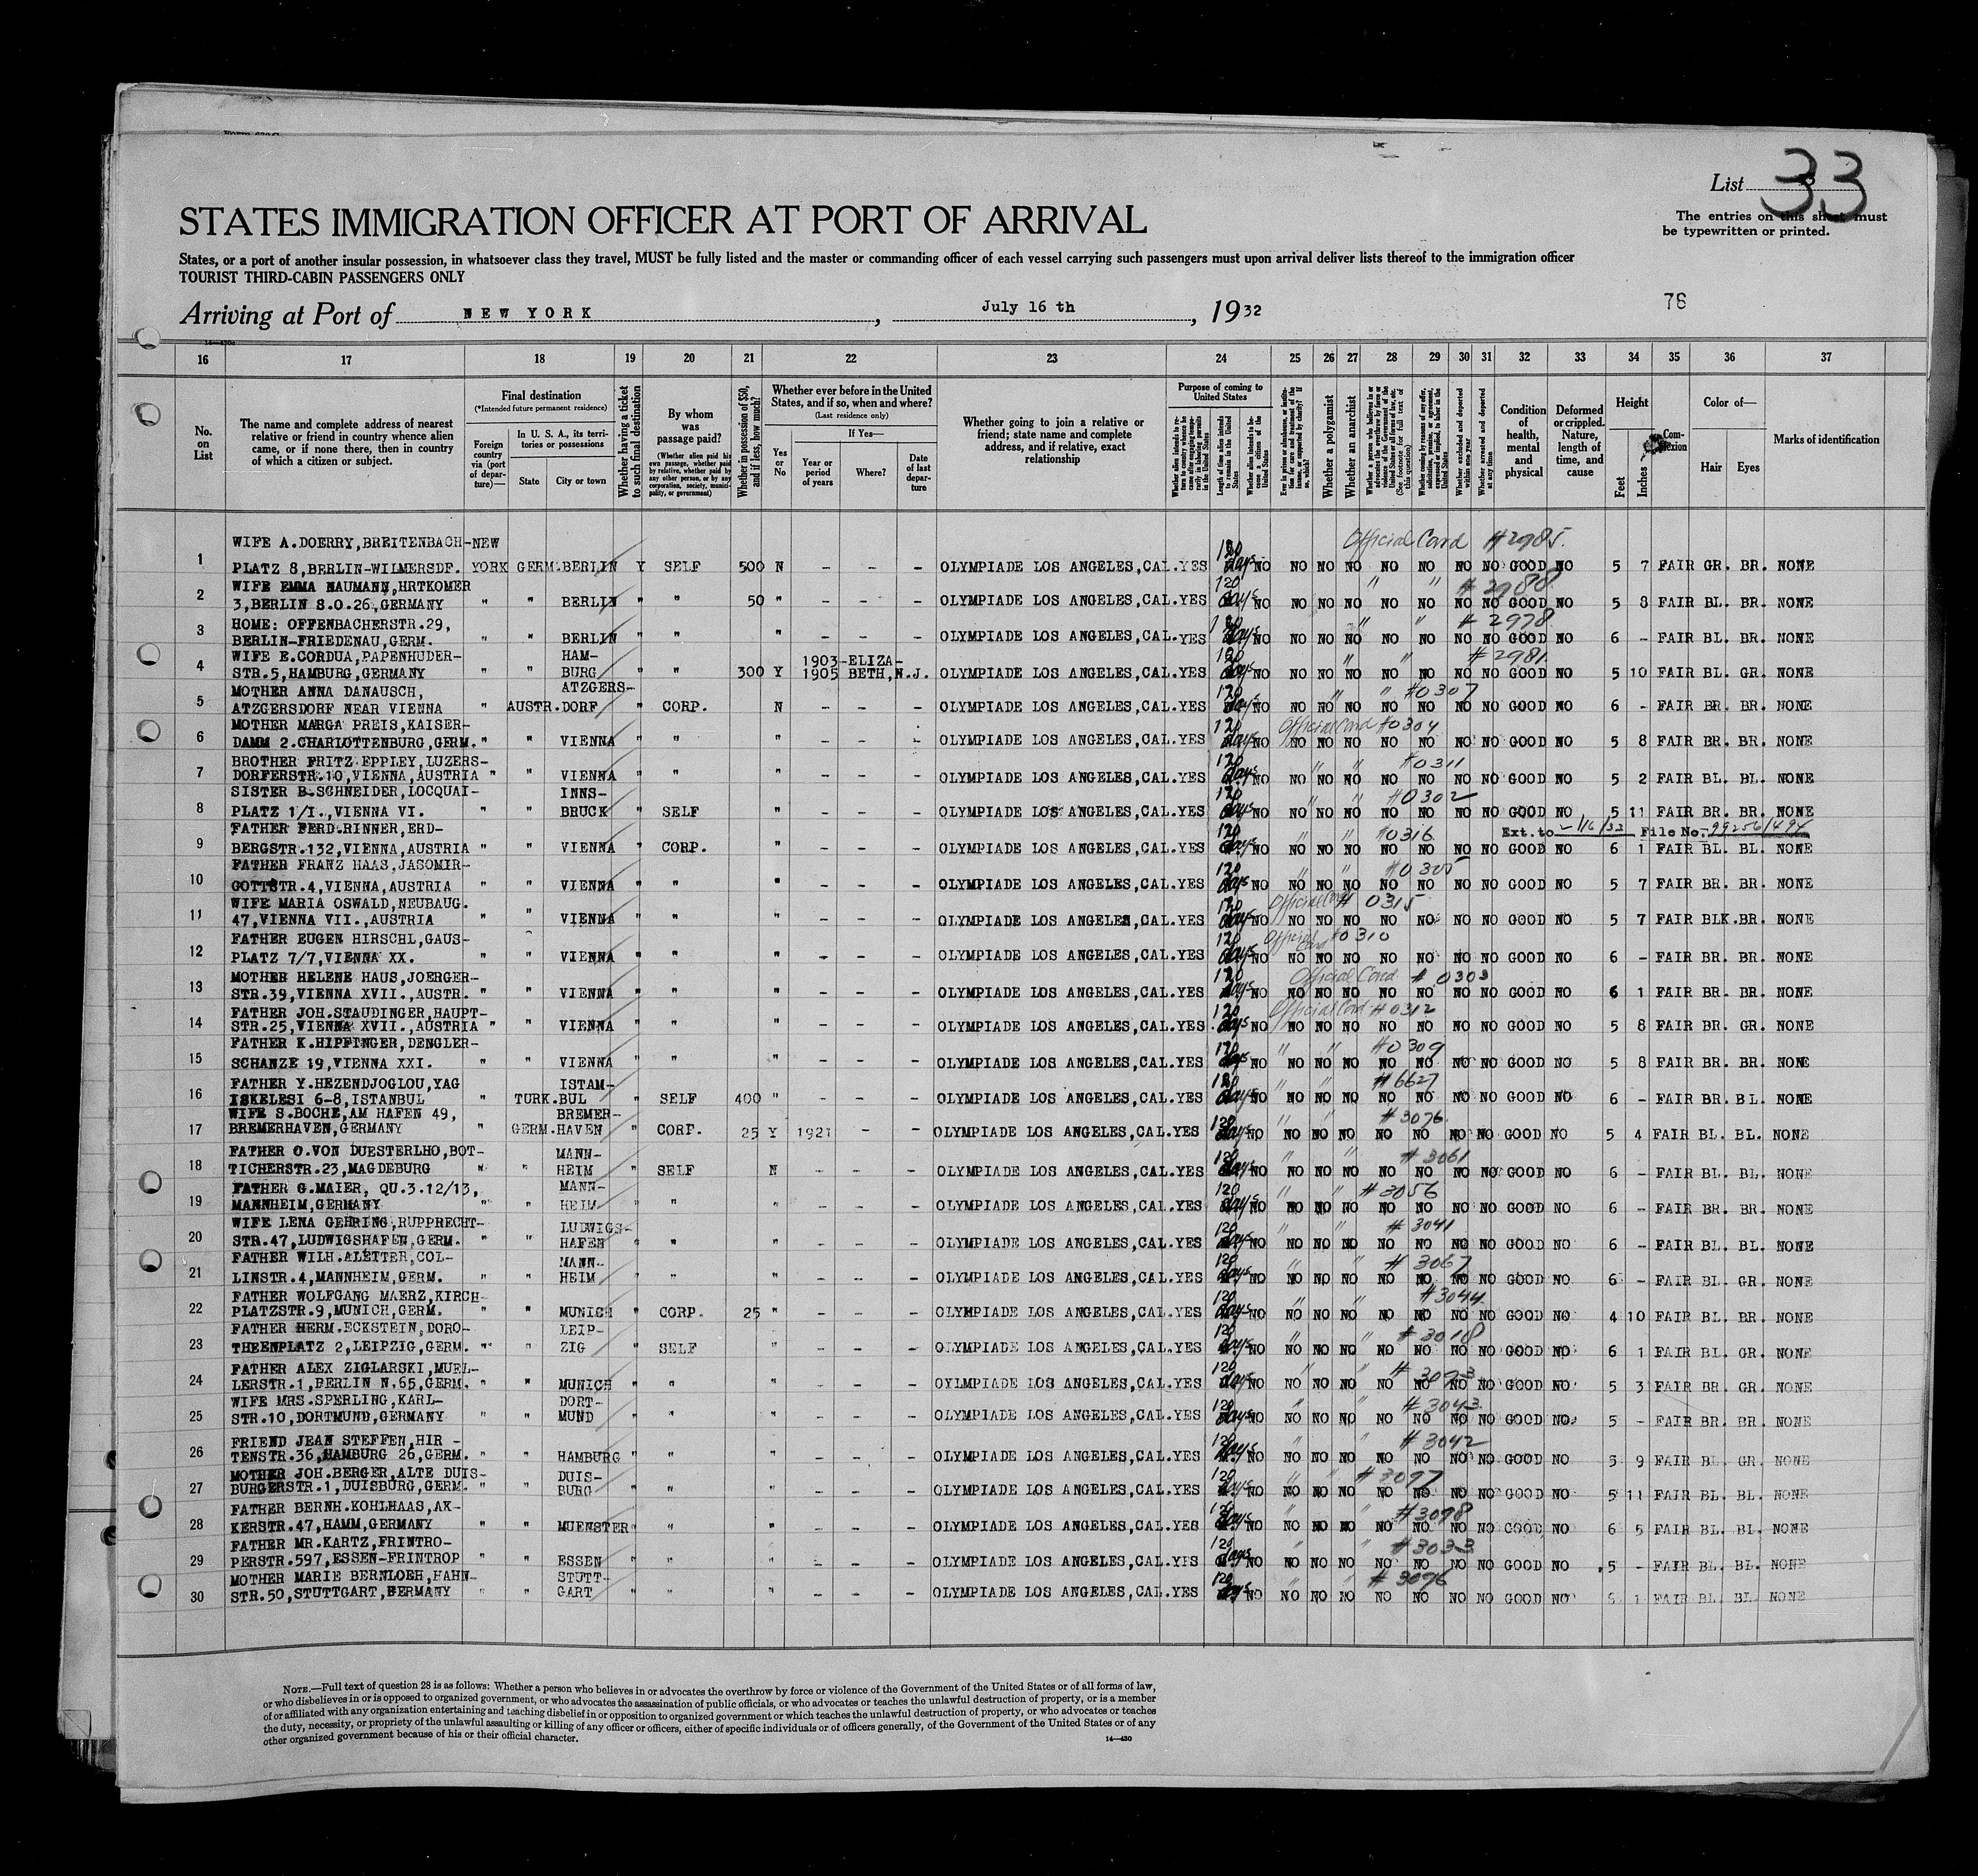 List 33
The entries on this sheet must
be typewritten or printed.
STATES IMMIGRATION OFFICER AT PORT OF ARRIVAL
States, or a port of another insular possession, in whatsoever class they travel, MUST be fully listed and the master or commanding officer of each vessel carrying such passengers must upon arrival deliver lists thereof to the immigration officer
TOURIST THIRD-CABIN PASSENGERS ONLY
Arriving at Port of NEW YORK, July 16 th, 1932
76
16 17 18 19 20 21 22 23 24 25 26 27 28 29 30 31 32 33 34 35 36 37
No. on List
The name and complete address of nearest
relative or friend in country whence alien
came, or if none there, then in country
of which a citizen or subject.
Final destination
(*Intended future permanent residence)
Foreign country via (port of departure)—
In U. S. A., its territories or possessions
State
City or town
Whether having a ticket to such final destination
By whom was passage paid?
(Whether alien paid his own passage, whether paid by relative, whether paid by any other person, or by any corporation, society, municipality, or government)
Whether in possession of $50, and if less, how much?
Whether ever before in the United States, and if so, when and where?
(Last residence only)
Yes or No
If Yes—
Year or period of years
Where?
Date of last departure
Whether going to join a relative or
friend; state name and complete
address, and if relative, exact
relationship
Purpose of coming to United States
Length of time alien intends to remain in the United States
Whether alien intends to become a citizen of the United States
Whether a polygamist
Whether an anarchist
Whether excluded and deported within one year
Whether arrested and deported at any time
Condition of health, mental and physical
Deformed or crippled. Nature, length of time, and cause
Height
Feet
Inches
Complexion
Color of—
Hair
Eyes
Marks of identification
WIFE A.DOERRY,BREITENBACH-NEW 120 Official Card #2985.
1 PLATZ 8,BERLIN-WILMERSDF. YORK GERM.BERLIN Y SELF 500 N - - - OLYMPIADE LOS ANGELES,CAL.YES days NO NO NO NO NO NO NO NO GOOD NO 5 7 FAIR GR. BR. NONE
WIFE EMMA NAUMANN,HRTKOMER 120 " " #2988
2 3,BERLIN S.O.26,GERMANY " " BERLIN " " 50 " - - - OLYMPIADE LOS ANGELES,CAL.YES days NO NO NO NO NO NO NO NO GOOD NO 5 8 FAIR BL. BR. NONE
HOME: OFFENBACHERSTR.29, 120 " " #2978
3 BERLIN-FRIEDENAU,GERM. " " BERLIN " " " - - - OLYMPIADE LOS ANGELES,CAL.YES days NO NO NO NO NO NO NO NO GOOD NO 6 - FAIR BL. BR. NONE
WIFE E.CORDUA,PAPENHUDER- HAM- 1903-ELIZA- 120 " " #2981
4 STR.5,HAMBURG,GERMANY " " BURG " " 300 Y 1905 BETH,N.J. OLYMPIADE LOS ANGELES,CAL.YES days NO NO NO NO NO NO NO NO GOOD NO 5 10 FAIR BL. GR. NONE
MOTHER ANNA DANAUSCH, ATZGERS- 120 " " #0307
5 ATZGERSDORF NEAR VIENNA " AUSTR.DORF " CORP. N - - - OLYMPIADE LOS ANGELES,CAL.YES days NO NO NO NO NO NO NO NO GOOD NO 6 - FAIR BR. BR. NONE
MOTHER MARGA PREIS,KAISER- 120 Official Card #0304
6 DAMM 2.CHARLOTTENBURG,GERM." " VIENNA " " " - - - OLYMPIADE LOS ANGELES,CAL.YES days NO NO NO NO NO NO NO NO GOOD NO 5 8 FAIR BR. BR. NONE
BROTHER FRITZ EPPLEY,LUZERS- 120 " " #0311
7 DORFERSTR.10,VIENNA,AUSTRIA " " VIENNA " " " - - - OLYMPIADE LOS ANGELES,CAL.YES days NO NO NO NO NO NO NO NO GOOD NO 5 2 FAIR BL. BL. NONE
SISTER B.SCHNEIDER,LOCQUAI- INNS- 120 " " #0302
8 PLATZ 1/I.,VIENNA VI. " " BRUCK " SELF " - - - OLYMPIADE LOS ANGELES,CAL.YES days NO NO NO NO NO NO NO NO GOOD NO 5 11 FAIR BR. BR. NONE
FATHER FERD.RINNER,ERD- 120 " " #0316 Ext. to File No. 99256/494
9 BERGSTR.132,VIENNA,AUSTRIA " " VIENNA " CORP. " - - - OLYMPIADE LOS ANGELES,CAL.YES days NO NO NO NO NO NO NO NO GOOD NO 6 1 FAIR BL. BL. NONE
FATHER FRANZ HAAS,JASOMIR- 120 " " #0305
10 GOTTSTR.4,VIENNA,AUSTRIA " " VIENNA " " " - - - OLYMPIADE LOS ANGELES,CAL.YES days NO NO NO NO NO NO NO NO GOOD NO 5 7 FAIR BR. BR. NONE
WIFE MARIA OSWALD,NEUBAUG. 120 Official Card # 0315
11 47,VIENNA VII.,AUSTRIA " " VIENNA " " " - - - OLYMPIADE LOS ANGELES,CAL.YES days NO NO NO NO NO NO NO NO GOOD NO 5 7 FAIR BLK.BR. NONE
FATHER EUGEN HIRSCHL,GAUS- 120 Official Card #0310
12 PLATZ 7/7,VIENNA XX. " " VIENNA " " " - - - OLYMPIADE LOS ANGELES,CAL.YES days NO NO NO NO NO NO NO NO GOOD NO 6 - FAIR BR. BR. NONE
MOTHER HELENE HAUS,JOERGER- 120 Official Card # 0303
13 STR.39,VIENNA XVII.,AUSTR. " " VIENNA " " " - - - OLYMPIADE LOS ANGELES,CAL.YES days NO NO NO NO NO NO NO NO GOOD NO 6 1 FAIR BR. BR. NONE
FATHER JOH.STAUDINGER,HAUPT- 120 Official Card #0312
14 STR.25,VIENNA XVII.,AUSTRIA " " VIENNA " " " - - - OLYMPIADE LOS ANGELES,CAL.YES. days NO NO NO NO NO NO NO NO GOOD NO 5 8 FAIR BR. GR. NONE
FATHER K.HIPFINGER,DENGLER- 120 " " #0309
15 SCHANZE 19,VIENNA XXI. " " VIENNA " " " - - - OLYMPIADE LOS ANGELES,CAL.YES days NO NO NO NO NO NO NO NO GOOD NO 5 8 FAIR BR. BR. NONE
FATHER Y.HEZENDJOGLOU,YAG ISTAM- 120 " " #6627
16 ISKELESI 6-8,ISTANBUL " TURK.BUL " SELF 400 " - - - OLYMPIADE LOS ANGELES,CAL.YES days NO NO NO NO NO NO NO NO GOOD NO 6 - FAIR BR.BL. NONE
WIFE S.BOCHE,AM HAFEN 49, BREMER- 120 " " #3076
17 BREMERHAVEN,GERMANY " GERM.HAVEN " CORP. 25 Y 1921 - - OLYMPIADE LOS ANGELES,CAL.YES days NO NO NO NO NO NO NO NO GOOD NO 5 4 FAIR BL. BL. NONE
FATHER O.VON DUESTERLHO,BOT- MANN- 120 " " #3061
18 TICHERSTR.23,MAGDEBURG " " HEIM " SELF N - - - OLYMPIADE LOS ANGELES,CAL.YES days NO NO NO NO NO NO NO NO GOOD NO 6 - FAIR BL. BL. NONE
FATHER G.MAIER, QU.3.12/13, MANN- 120 " " #3056
19 MANNHEIM,GERMANY " " HEIM " " " - - - OLYMPIADE LOS ANGELES,CAL.YES days NO NO NO NO NO NO NO NO GOOD NO 6 - FAIR BR. BR. NONE
WIFE LENA GEHRING,RUPPRECHT- LUDWIGS- 120 " " #3041
20 STR.47,LUDWIGSHAFEN,GERM. " " HAFEN " " " - - - OLYMPIADE LOS ANGELES,CAL.YES days NO NO NO NO NO NO NO NO GOOD NO 6 - FAIR BL. BL. NONE
FATHER WILH.ALETTER,COL- MANN- 120 " " #3067
21 LINSTR.4,MANNHEIM,GERM. " " HEIM " " " - - - OLYMPIADE LOS ANGELES,CAL.YES days NO NO NO NO NO NO NO NO GOOD NO 6 - FAIR BL. GR. NONE
FATHER WOLFGANG MAERZ,KIRCH- 120 " " #3044
22 PLATZSTR.9,MUNICH,GERM. " " MUNICH " CORP. 25 " - - - OLYMPIADE LOS ANGELES,CAL.YES days NO NO NO NO NO NO NO NO GOOD NO 4 10 FAIR BL. BR. NONE
FATHER HERM.ECKSTEIN,DORO- LEIP- 120 " " #3018
23 THEENPLATZ 2,LEIPZIG,GERM. " " ZIG " SELF " - - - OLYMPIADE LOS ANGELES,CAL.YES days NO NO NO NO NO NO NO NO GOOD NO 6 1 FAIR BL. GR. NONE
FATHER ALEX ZIGLARSKI,MUEL- 120 " " #3093
24 LERSTR.1,BERLIN N.65,GERM. " " MUNICH " " " - - - OYLMPIADE LOS ANGELES,CAL.YES days NO NO NO NO NO NO NO NO GOOD NO 5 3 FAIR BR. GR. NONE
WIFE MRS.SPERLING,KARL- DORT- 120 " " #3043
25 STR.10,DORTMUND,GERMANY " " MUND " " " - - - OLYMPIADE LOS ANGELES,CAL.YES days NO NO NO NO NO NO NO NO GOOD NO 5 - FAIR BR. BR. NONE
FRIEND JEAN STEFFEN,HIR - 120 " " #3042
26 TENSTR.36,HAMBURG 26,GERM. " " HAMBURG " " " - - - OLYMPIADE LOS ANGELES,CAL.YES days NO NO NO NO NO NO NO NO GOOD NO 5 9 FAIR BL. GR. NONE
MOTHER JOH.BERGER,ALTE DUIS- DUIS- 120 " " #3097
27 BURGERSTR.1,DUISBURG,GERM. " " BURG " " " - - - OLYMPIADE LOS ANGELES,CAL.YES days NO NO NO NO NO NO NO NO GOOD NO 5 11 FAIR BL. BL. NONE
FATHER BERNH.KOHLHAAS,AK- 120 " " #3098
28 KERSTR.47,HAMM,GERMANY " " MUENSTER" " " - - - OLYMPIADE LOS ANGELES,CAL.YES days NO NO NO NO NO NO NO NO GOOD NO 6 5 FAIR BL. BL. NONE
FATHER MR.KARTZ,FRINTRO- 120 " " #3033
29 PERSTR.597,ESSEN-FRINTROP " " ESSEN " " " - - - OLYMPIADE LOS ANGELES,CAL.YES days NO NO NO NO NO NO NO NO GOOD NO 5 - FAIR BL. BL. NONE
MOTHER MARIE BERNLOEH,HAHN- STUTT- 120 " " #3096
30 STR.50,STUTTGART,BERMANY " " GART " " " - - - OLYMPIADE LOS ANGELES,CAL.YES days NO NO NO NO NO NO NO NO GOOD NO 6 1 FAIR BL. BL. NONE
NOTE.—Full text of question 28 is as follows: Whether a person who believes in or advocates the overthrow by force or violence of the Government of the United States or of all forms of law,
or who disbelieves in or is opposed to organized government, or who advocates the assassination of public officials, or who advocates or teaches the unlawful destruction of property, or is a member
of or affiliated with any organization entertaining and teaching disbelief in or opposition to organized government or which teaches the unlawful destruction of property, or who advocates or teaches
the duty, necessity, or propriety of the unlawful assaulting or killing of any officer or officers, either of specific individuals or of officers generally, of the Government of the United States or of any
other organized government because of his or their official character.
14—430